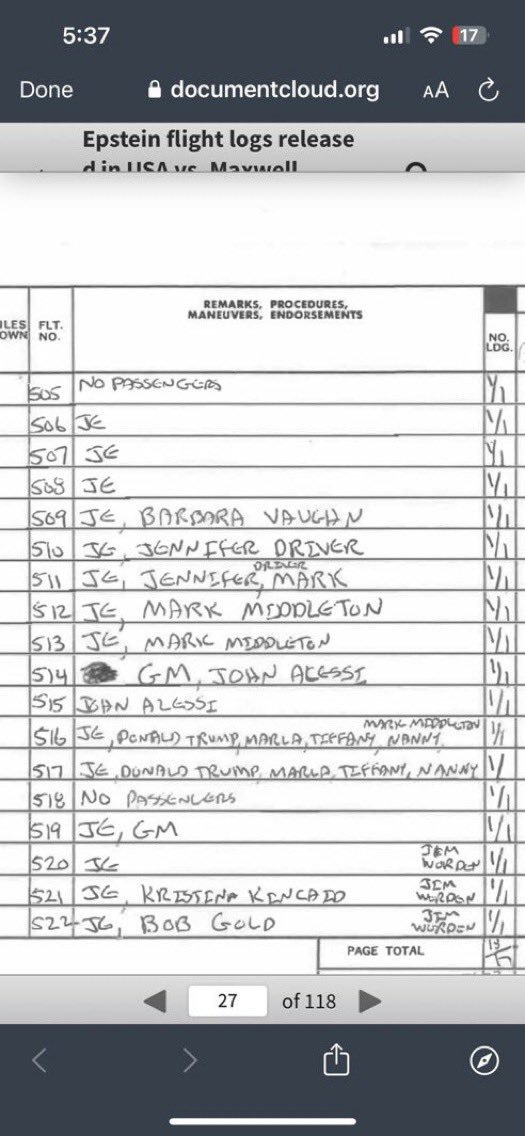 5:37
17
Done
documentcloud.org
AA
Epstein flight logs release
d in USA vs. Maxwell
REMARKS, PROCEDURES,
MANEUVERS, ENDORSEMENTS
ILES
OWN
FLT.
NO.
NO.
LDG.
505 NO PASSENGERS 1/1
506 JE 1/1
507 JE 1/1
508 JE 1/1
509 JE, BARBARA VAUGHN 1/1
510 JE, JENNIFER DRIVER 1/1
DRIVER
511 JE, JENNIFER, MARK 1/1
512 JE, MARK MIDDLETON 1/1
513 JE, MARK MIDDLETON 1/1
514 GM, JOHN ALESSI 1/1
515 JOHN ALESSI 1/1
MARK MIDDLETON
516 JE, DONALD TRUMP, MARLA, TIFFANY, NANNY 1/1
517 JE, DONALD TRUMP, MARLA, TIFFANY, NANNY
518 NO PASSENGERS 1/1
519 JE, GM 1/1
520 JE JIM WORDEN 1/1
521 JE, KRISTINA KINCAID JIM WORDEN 1/1
522 JE, BOB GOLD JIM WORDEN 1/1
PAGE TOTAL
27 of 118